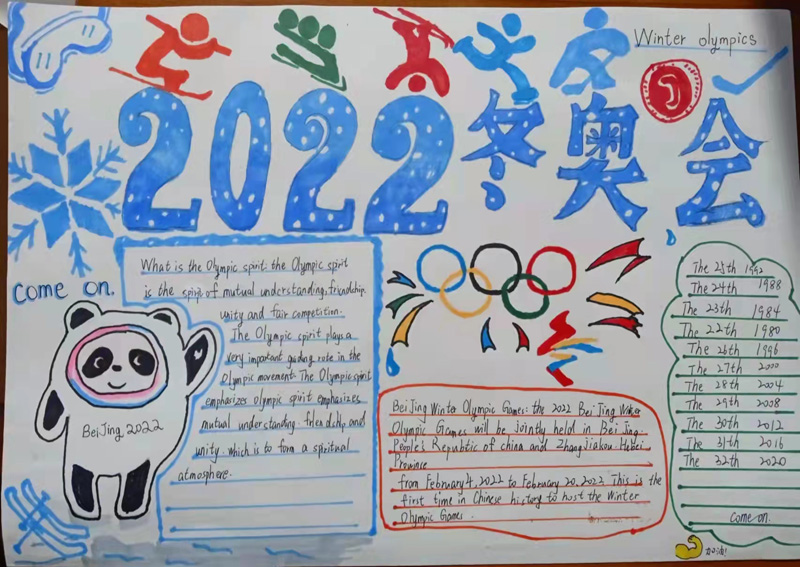 Winter olympics
2022冬奥会
come on.
What is the Olympic spirit. the Olympic spirit
is the spirit of mutual understanding, friendship.
unity and fair competition.
The Olympic spirit plays a
very important guding role in the
Olympic movement. The Olympic spirit
emphasizes olympic spirit emphasizes
mutual understanding. friendship and
unity. which is to form a spiritual
atmosphere.
BeiJing 2022
BeiJing Winter Olympic Games: the 2022 BeiJing Winter
Olympic Games will be jointly held in BeiJing.
People's Republic of china and Zhangjiakou Hebei
Province
from February 4, 2022 to February 20, 2022. This is the
first time in Chinese history to host the Winter
Olympic Games.
The 25th 1992
The 24th 1988
The 23th 1984
The 22th 1980
The 26th 1996
The 27th 2000
The 28th 2004
The 29th 2008
The 30th 2012
The 31th 2016
The 32th 2020
Come on.
加油!